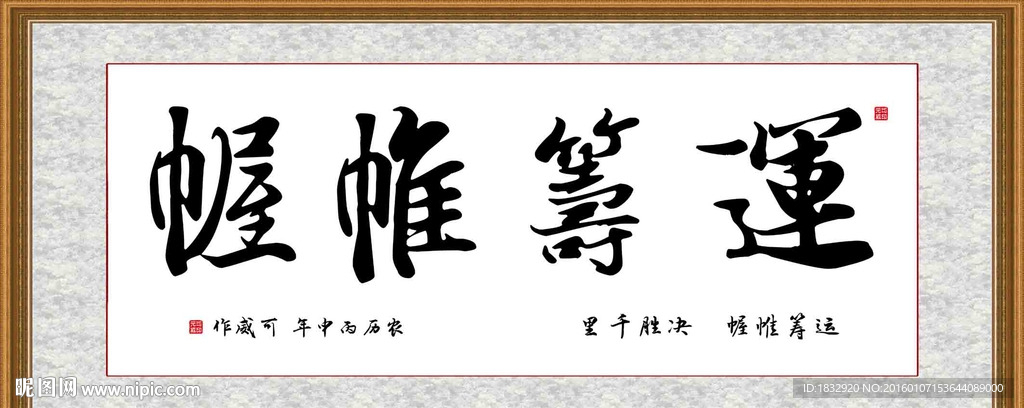 運籌帷幄
运筹帷幄 决胜千里
农历丙申年 可威作
昵图网 www.nipic.com
ID:1832920 NO:20160107153644089000